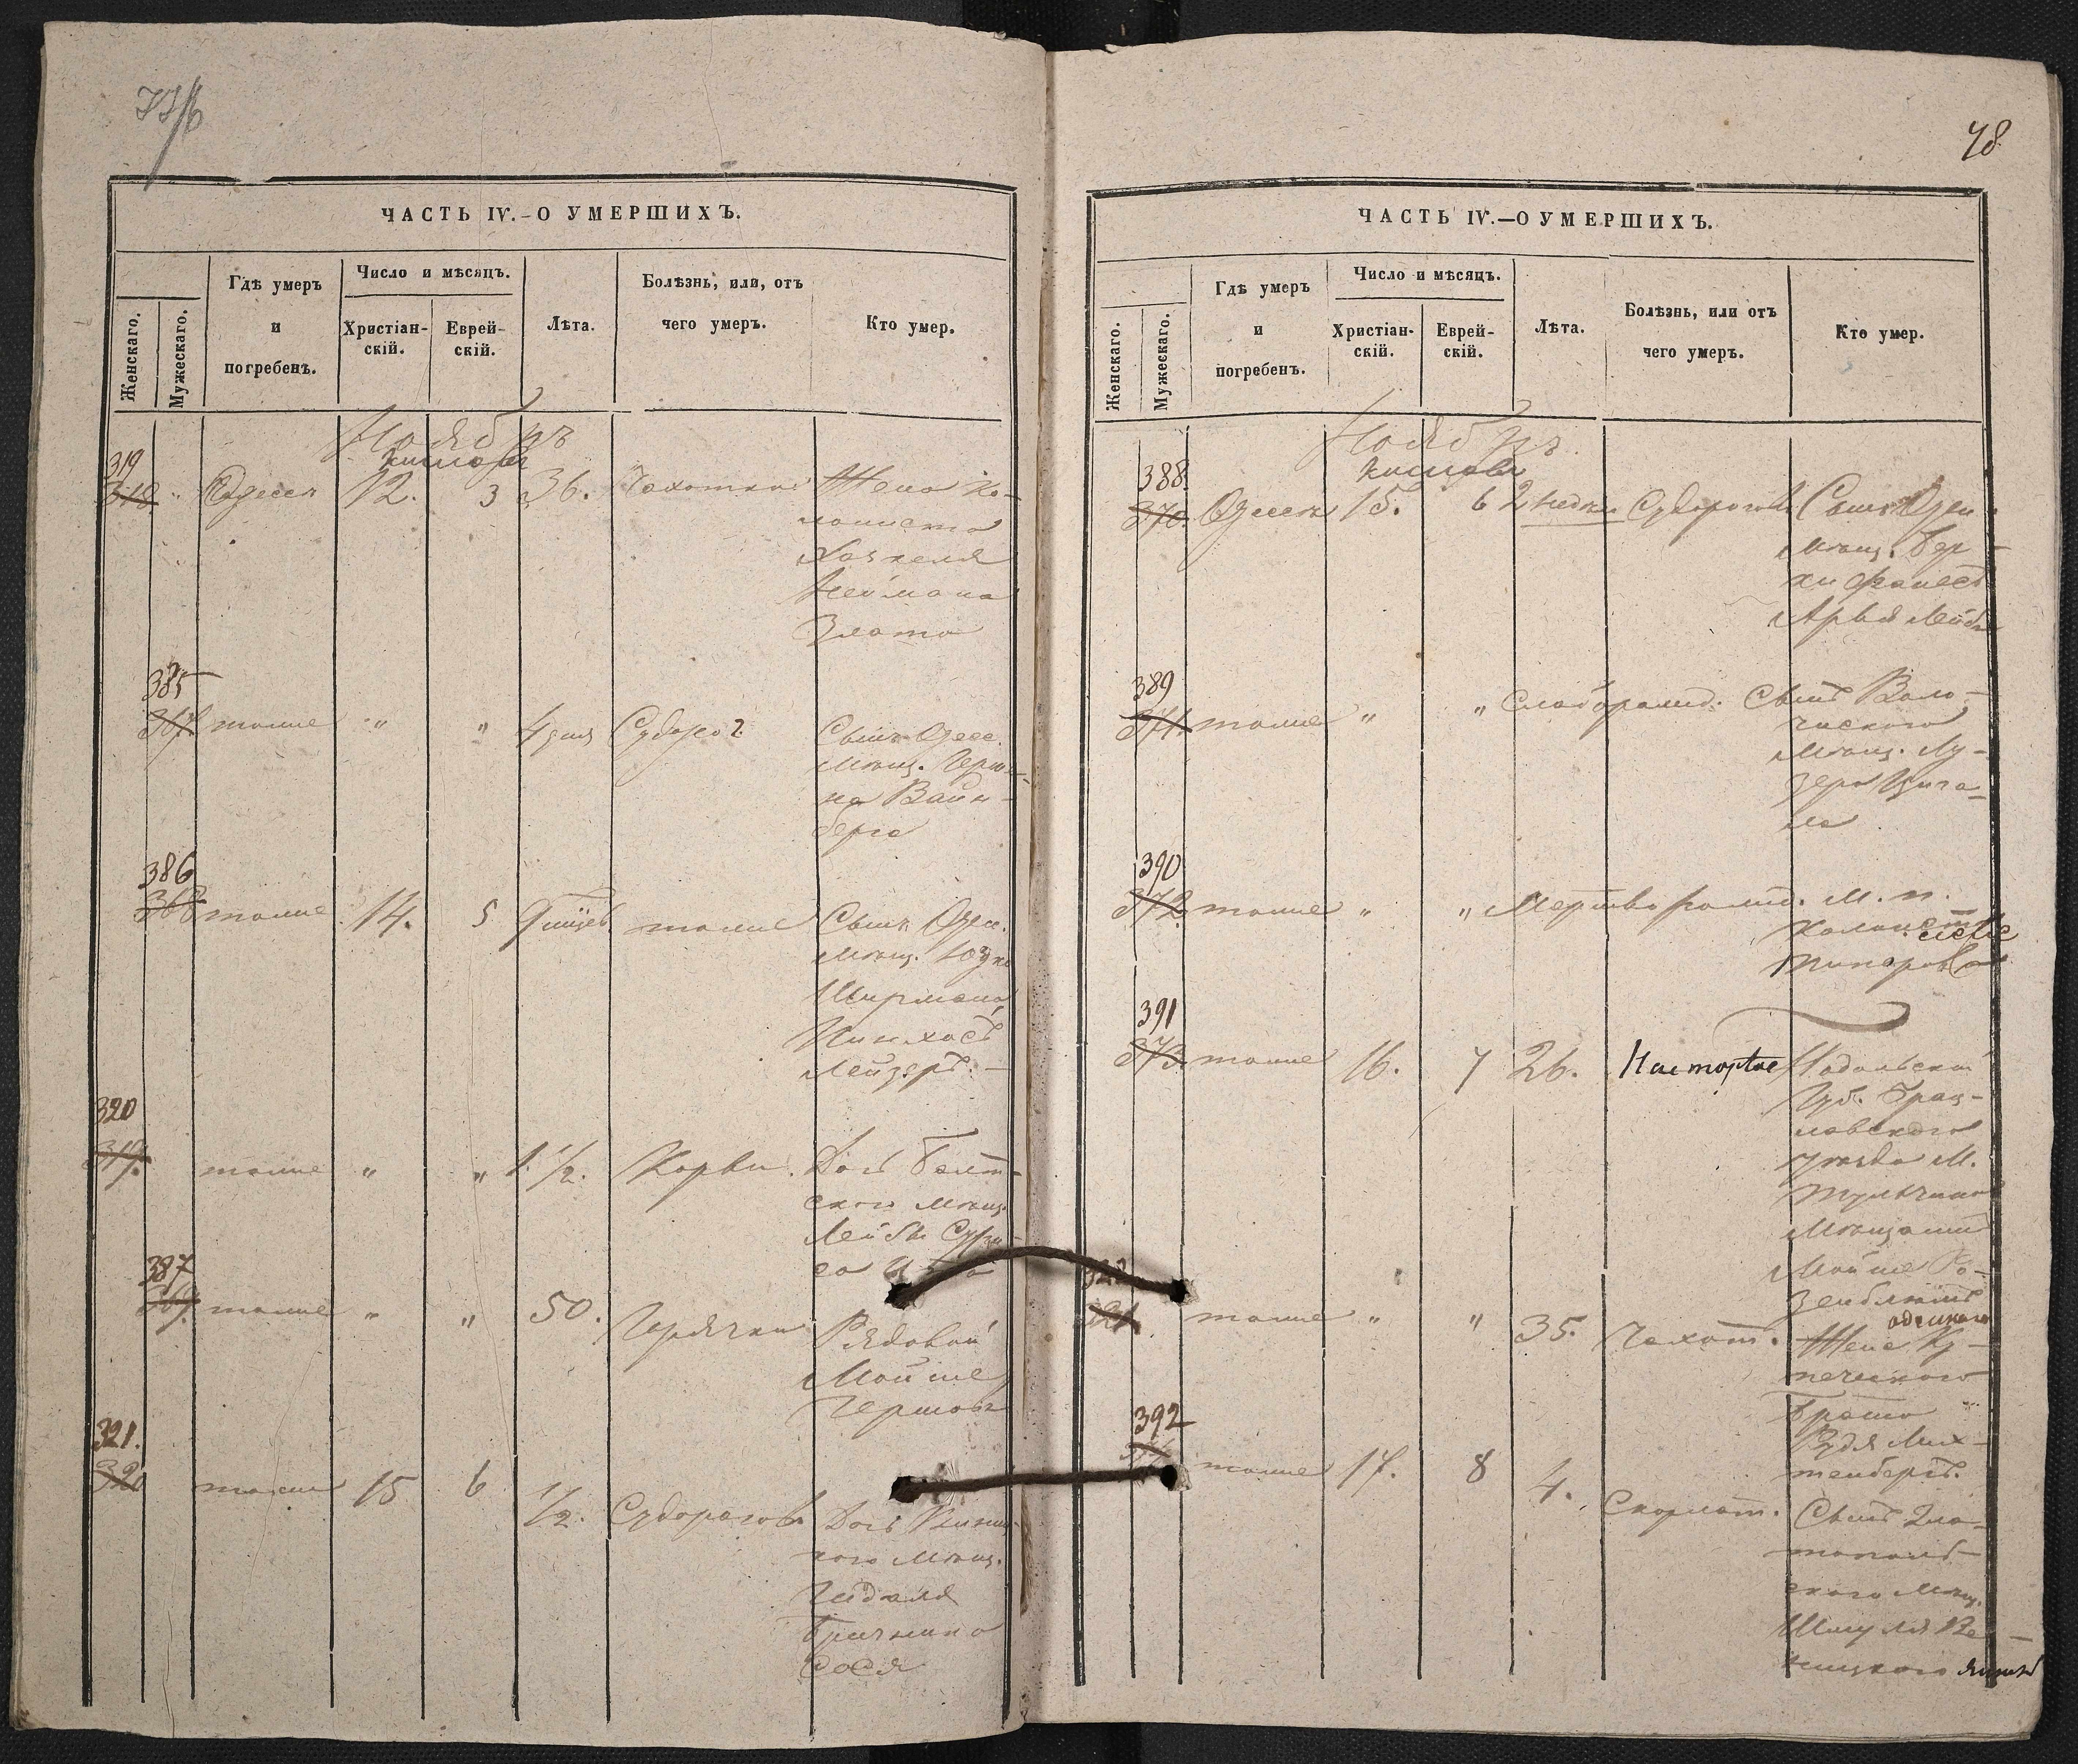 ЧАСТЬ IV.-О УМЕРШИХЪ.
Женскаго.
Мужескаго.
Гдѣ умеръ
и
погребенъ.
Число и мѣсяцъ.
Христіан-
скій.
Еврей-
скій.
Лѣта.
Болѣзнь, или, отъ
чего умеръ.
Кто умер.
Ноябрь
Кислевъ
319
318 " Одесса 12. 3 36. Чахотка Жена Ко-
лониста
Хаскеля
Неймана
Злата
385
367 тоже " " 4 дня Судорог. Сынъ Одес.
Мѣщ. Герш-
ка Вайн-
берга
386
368 тоже 14. 5 9 тоже Сынъ Одес.
мѣщ. Юдко
Ширмана
Пинхасъ
Лейзеръ.
320
319. тоже " " 1 1/2. Корью. Дочь Балт-
скаго мѣщ.
Лейбы
387
369. тоже " " 50. Горячки Рядовой
Мойше
Гершовъ
321.
320 тоже 15 6 1/2. Судорогов. Дочь
каго мѣщ.
Гидаля
Бричкина
Сося
48
ЧАСТЬ IV.—О УМЕРШИХЪ.
Женскаго.
Мужескаго.
Гдѣ умеръ
и
погребенъ.
Число и мѣсяцъ.
Христіан-
скій.
Еврей-
скій.
Лѣта.
Болѣзнь, или отъ
чего умеръ.
Кто умер.
Ноябрь.
Кислевъ
388.
370. Одесса 15. 6 2 недѣл. Судорогов. Сынъ Одес.
мѣщ. Бер-
Арья Лейбъ
389
371. тоже " " Слаборожд. Сынъ Воло-
чискаго
мѣщ. Лу-
зера Цига-
на
390
372. тоже " " Мертворожд. М. п.
391
373. тоже 16. 7 26. Подольской
Губ. Брац-
лавскаго
уѣзда М.
Тульчина
мѣщанинъ
Мойше Ро-
зенблютъ
322
321 тоже " " 35. Чахот. одесскаго
Жена Ку-
печескаго
Брата
Рудя Лих-
тенбергъ.
392
тоже 17. 8 4. Скорлат. Сынъ Зла-
тополь-
скаго мѣщ.
Шмуля Ве-